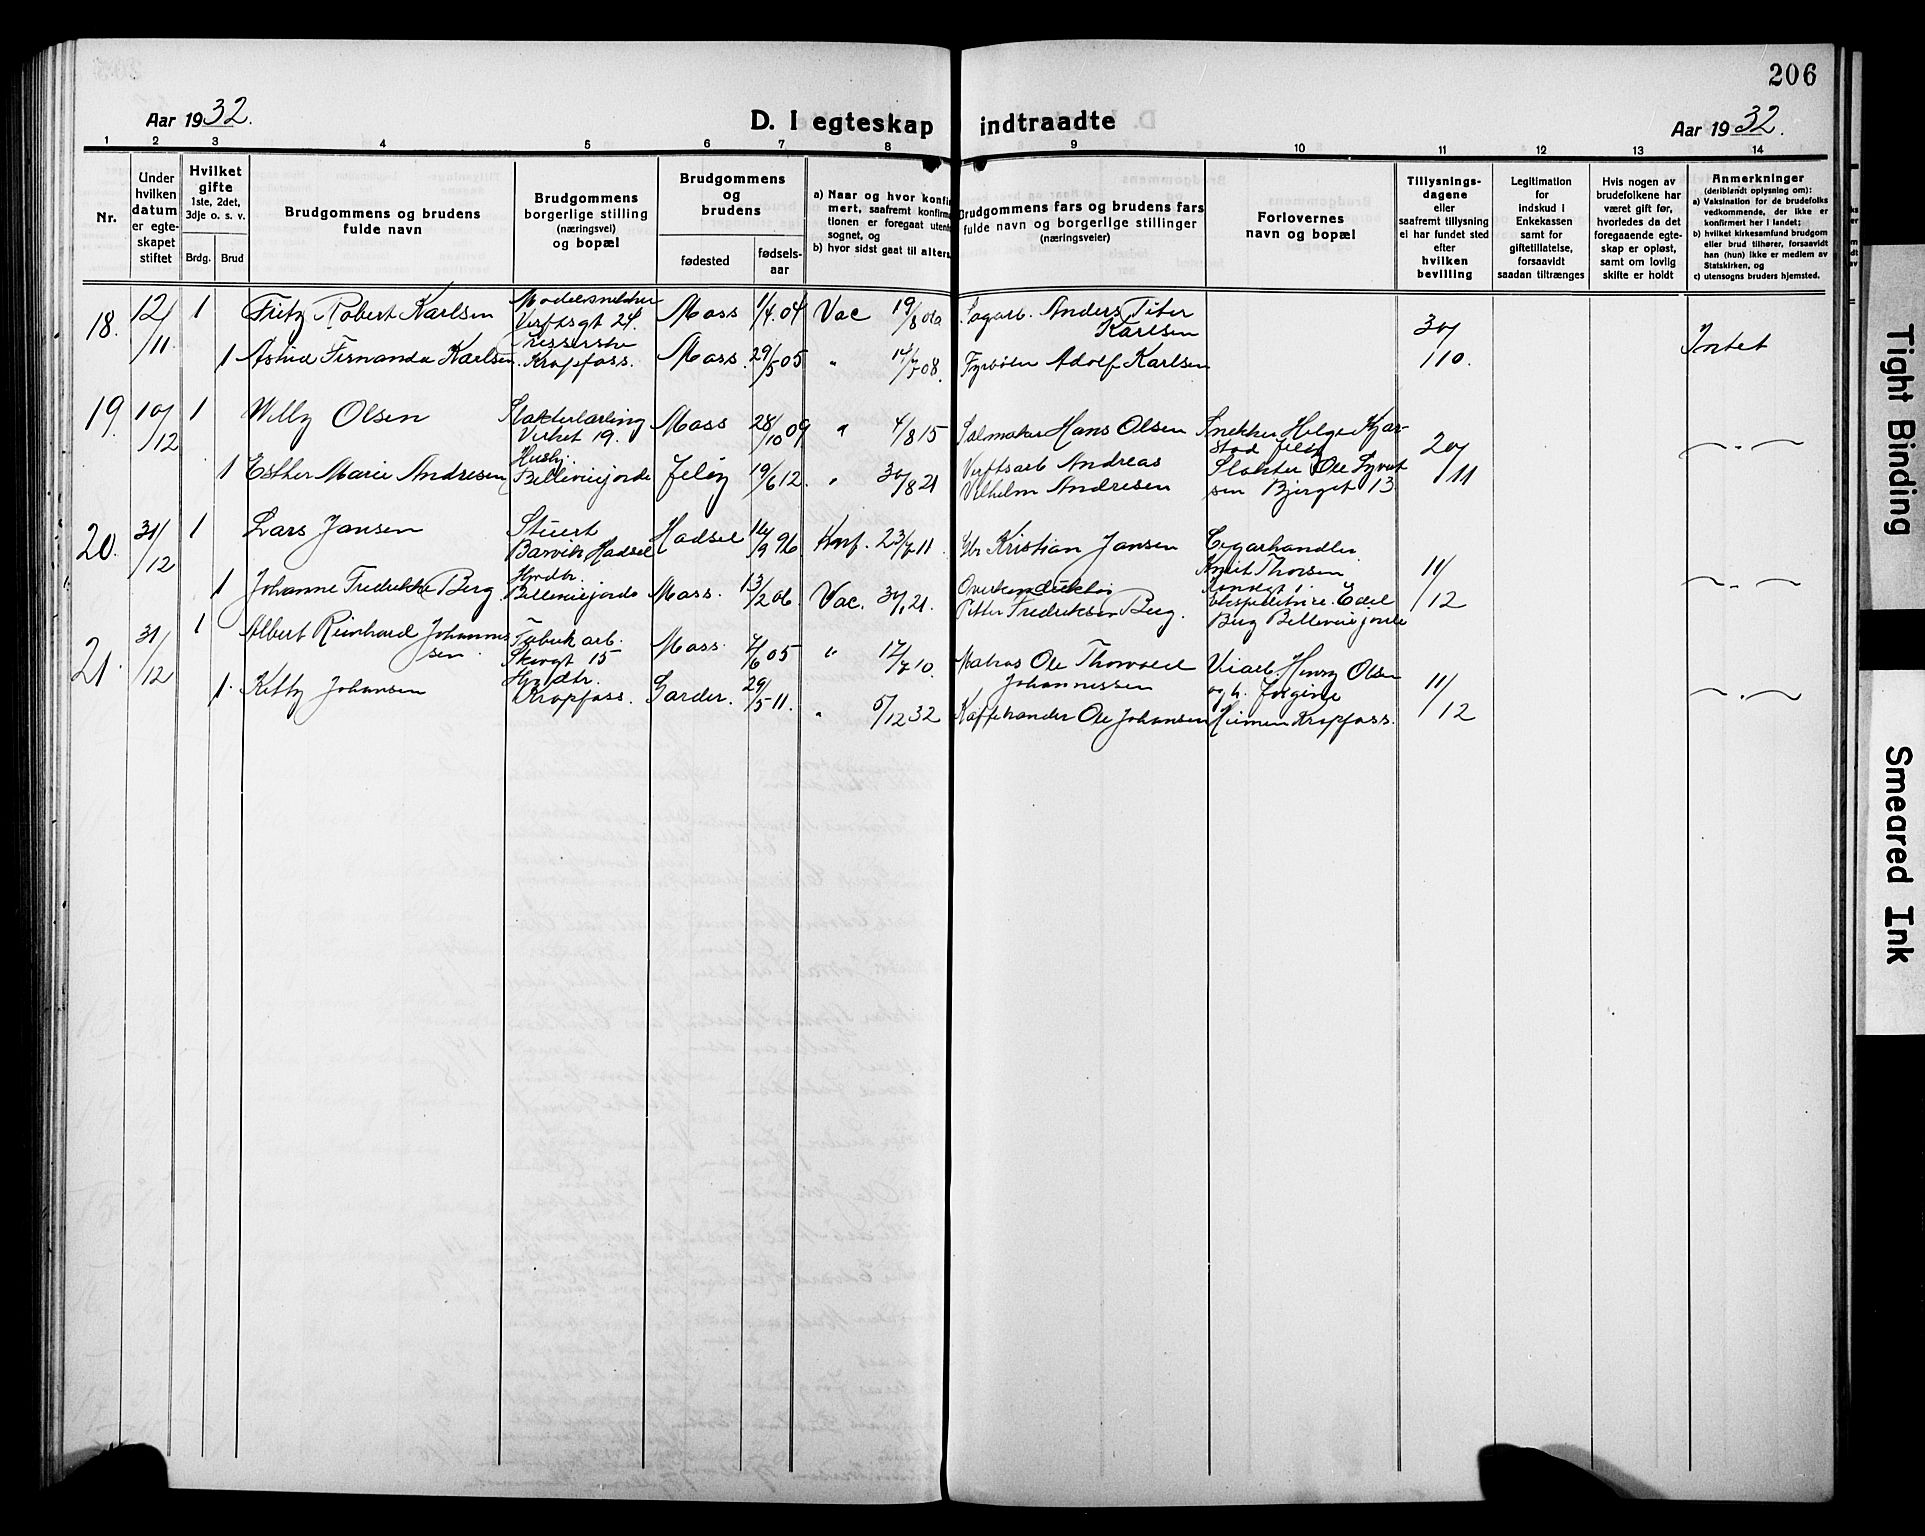 206
Aar 1932.
D. I egteskap indtraadte
Aar 1932.
1 2 3 4 5 6 7 8 9 10 11 12 13 14
Nr.
Under
hvilken
datum
er egte-
skapet
stiftet
Hvilket
gifte
1ste, 2det,
3dje o. s. v.
Brdg. Brud
Brudgommens og brudens
fulde navn
Brudgommens
borgerlige stilling
(næringsvei)
og bopæl
Brudgommens
og
brudens
fødested
fødsels-
aar
a) Naar og hvor konfir
mert, saafremt konfirma
tionen er foregaat utenfo
sognet, og
b) hvor sidst gaat til alters.
Brudgommens fars og brudens fars
fulde navn og borgerlige stillinger
(næringsveier)
Forlovernes
navn og bopæl
Tillysnings-
dagene
eller
saafremt tillysning
ei har fundet sted
efter
hvilken
bevilling
Legitimation
for
indskud i
Enkekassen
samt for
giftetillatelse,
forsaavidt
saadan tiltrænges
Hvis nogen av
brudefolkene har
været gift før,
hvorledes da det
foregaaende egte-
skap er opløst,
samt om lovlig
skifte er holdt
Anmerkninger
(deriblandt oplysning om):
a) Vaksination for de brudefolks
vedkommende, der ikke er
konfirmert her i landet;
b) hvilket kirkesamfund brudgom
eller brud tilhører, forsaavidt
han (hun) ikke er medlem av
Statskirken, og
c) utensogns bruders hjemsted.
18. 12/11 1 Fritz Robert Karlsen
Verftsgt 24.
Moss 1/4.04 Vac 19/8 06 Sagarb. Anders Peter
Karlsen
30/10. Intet
1 Astrid Fernanda Karlsen
Kropfoss.
Moss. 29/5 05 " 14/7 08. Fyrbøter Adolf Karlsen
19. 10/12 1 Willy Olsen
Slakterlærling
Verket 19.
Moss 28/10 09 " 4/8 15 Salmaker Hans Olsen
Snekker Helge Kjær-
stad Jeløy
20/11 — " —
1 Esther Marie Andresen
Husbj.
Bellevuejordet
Jeløy 19/6 12. " 30/8 21 Verftsarb Andreas
Vilhelm Andresen
Slakter Ole Syvert
sen Bjerget 13
20. 31/12 1 Lars Jansen
Stuert
Barvik Hadsel
Hadsel 14/9 96 Knf. 23/7 11 Gbr Kristian Jansen
Cigarhandler
Knut Thorsen
11/12 — " —
1 Johanne Fredrikke Berg
Hvdtr.
Bellevuejordet
Moss. 13/2 06. Vac. 30/1 21. Overkonduktør
Petter Fredriksen Berg.
Ekspeditrice. Edel
Berg Bellevuejordet
21. 31/12 1 Albert Reinhard Johannes
sen.
Fabrik arb.
Skovgt 15
Moss. 7/6 05 " 12/7 10. Matros Ole Thorvald
Johannessen
Viarb. Henry Olsen
og h. Jørgine
11/12 — " —
1. Kitty Johansen
Hvdtr.
Kropfoss.
Garder. 29/5 11. " 5/12 32 Kaffehandler Ole Johansen
Kropfoss.
Tight Binding
Smeared Ink